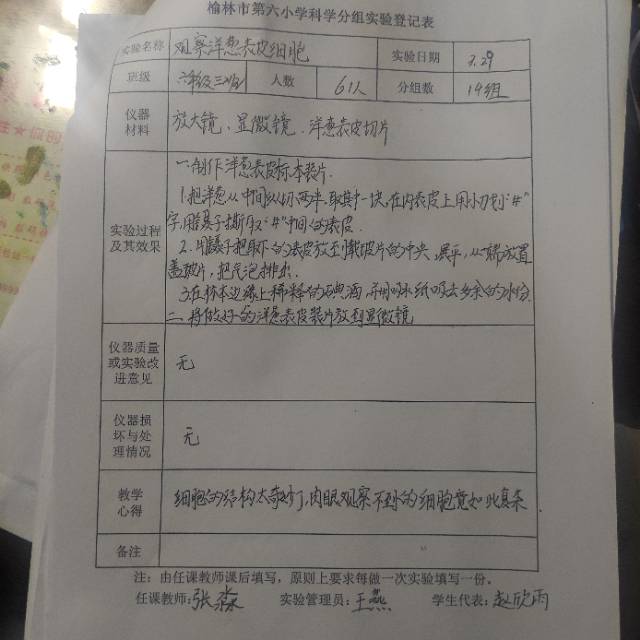 榆林市第六小学科学分组实验登记表
实验名称 观察洋葱表皮细胞 实验日期 3.29
班级 六年级三班 人数 61人 分组数 14组
仪器材料 放大镜、显微镜、洋葱表皮切片
实验过程及其效果
一.制作洋葱表皮标本装片.
1.把洋葱从中间纵切两半,取其中一块,在内表皮上用小刀划“#”
字,用镊子撕取“#”中间的表皮.
2.用镊子把取下的表皮放到载玻片的中央,展平,从一端放置
盖玻片,把气泡排出.
3.在标本边缘上稀释的碘酒,并用吸水纸吸去多余的水份.
二.将做好的洋葱表皮装片放到显微镜
仪器质量或实验改进意见 无
仪器损坏与处理情况 无
教学心得 细胞的结构太奇妙了,肉眼观察不到的细胞竟如此复杂
备注
注:由任课教师课后填写,原则上要求每做一次实验填写一份。
任课教师:张淼 实验管理员:王燕 学生代表:赵欣雨